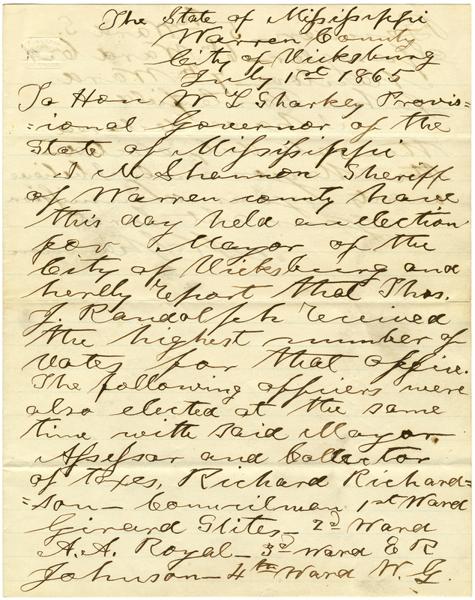 The State of Mississippi
Warren County
City of Vicksburg
July 1st 1865
To Hon W L Sharkey Provis-
=ional Governor of the
State of Mississippi
I M Shannon Sheriff
of Warren county have
this day held an election
for Mayor of the
City of Vicksburg and
herby report that Thos.
J. Randolph received
the highest number of
Votes for that office.
The following officers were
also elected at the same
time with said Mayor
Assessor and Collector
of taxes, Richard Richard=
=son - Councilman 1st Ward
Girard Stites - 2d Ward
A. A. Royal - 3d Ward E R
Johnson - 4th Ward W. G.